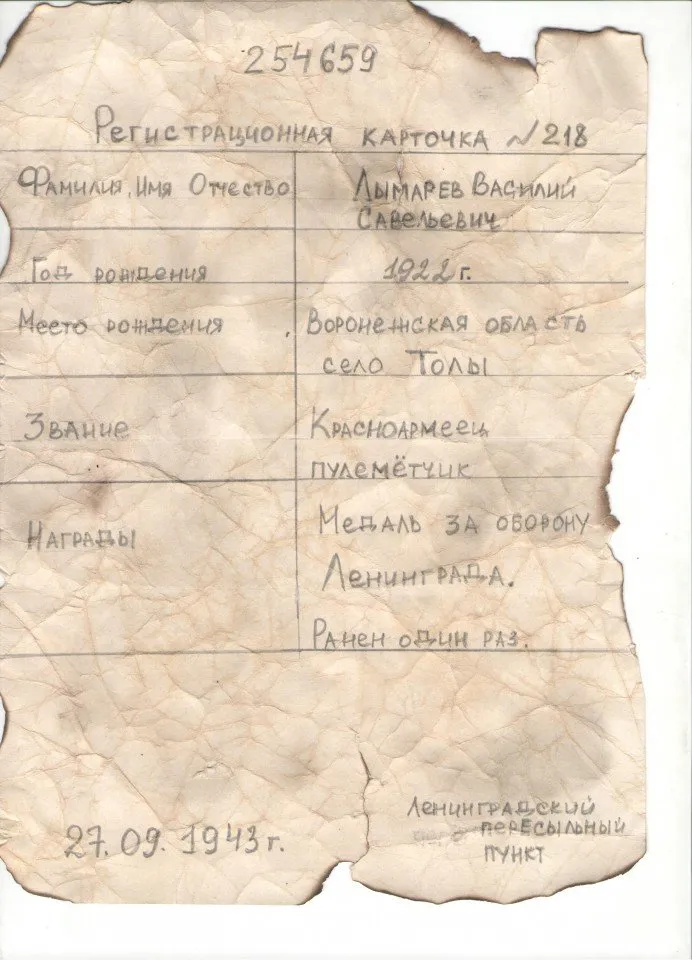 254659
Регистрационная карточка №218
Фамилия, Имя Отчество Лымарев Василий
Савельевич
Год рождения 1922 г.
Место рождения Воронежская область
село Толы
Звание Красноармеец
пулемётчик
Награды Медаль за оборону
Ленинграда.
Ранен один раз.
27.09.1943 г.
Ленинградский
пересыльный
пункт